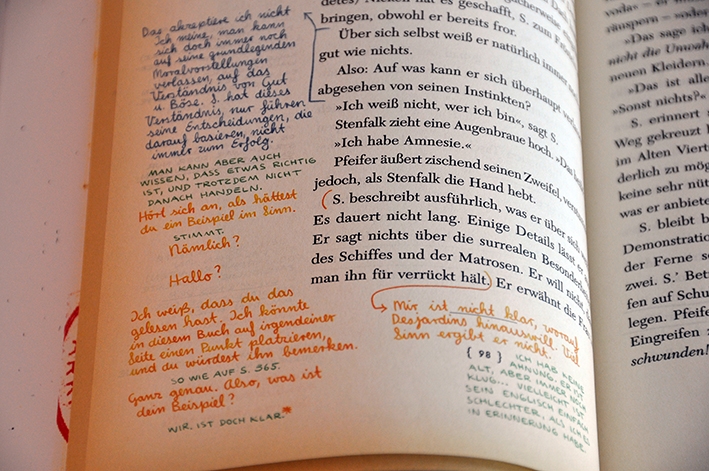 Das akzeptiere ich nicht
Ich meine, man kann
sich doch immer noch
auf seine grundlegenden
Moralvorstellungen
verlassen, auf das
Verständnis von Gut
u. Böse. S. hat dieses
Verständnis, nur führen
seine Entscheidungen, die
darauf basieren, nicht
immer zum Erfolg.
MAN KANN ABER AUCH
WISSEN, DASS ETWAS RICHTIG
IST, UND TROTZDEM NICHT
DANACH HANDELN.
Hört sich an, als hättest
du ein Beispiel im Sinn.
STIMMT.
Nämlich?
Hallo?
Ich weiß, dass du das
gelesen hast. Ich könnte
in diesem Buch auf irgendeiner
Seite einen Punkt platzieren,
und du würdest ihn bemerken.
SO WIE AUF S. 365.
Ganz genau. Also, was ist
dein Beispiel?
WIR. IST DOCH KLAR.*
Nicken hat es geschafft, S. zum
bringen, obwohl er bereits fror.
Über sich selbst weiß er natürlich immer
gut wie nichts.
Also: Auf was kann er sich überhaupt
abgesehen von seinen Instinkten?
»Ich weiß nicht, wer ich bin«, sagt S.
Stenfalk zieht eine Augenbraue hoch.
»Ich habe Amnesie.«
Pfeifer äußert zischend seinen Zweifel,
jedoch, als Stenfalk die Hand hebt.
(S. beschreibt ausführlich, was er über
Es dauert nicht lang. Einige Details lässt er
Er sagt nichts über die surrealen
des Schiffes und der Matrosen. Er will
man ihn für verrückt hält.) Er erwähnt die
Mir ist nicht klar, worauf
Desjardins hinauswill. Viel
Sinn ergibt er nicht.
{ 98 }
ICH HAB KEINE
AHNUNG. ER IST
ALT, ABER IMMER NOCH
KLUG... VIELLEICHT IST
SEIN ENGLISCH EINFACH
SCHLECHTER, ALS ICH ES
IN ERINNERUNG HABE.
räuspern –
»Das sage
nicht die
neuen Kleidern.
»Das ist
»Sonst nichts?«
S. erinnert
Weg gekreuzt
im Alten
derlich zu
keine sehr
was er
S. bleibt
Demonstration
der Ferne
zwei. S.'
fen auf
legen.
Eingreifen
schwunden!